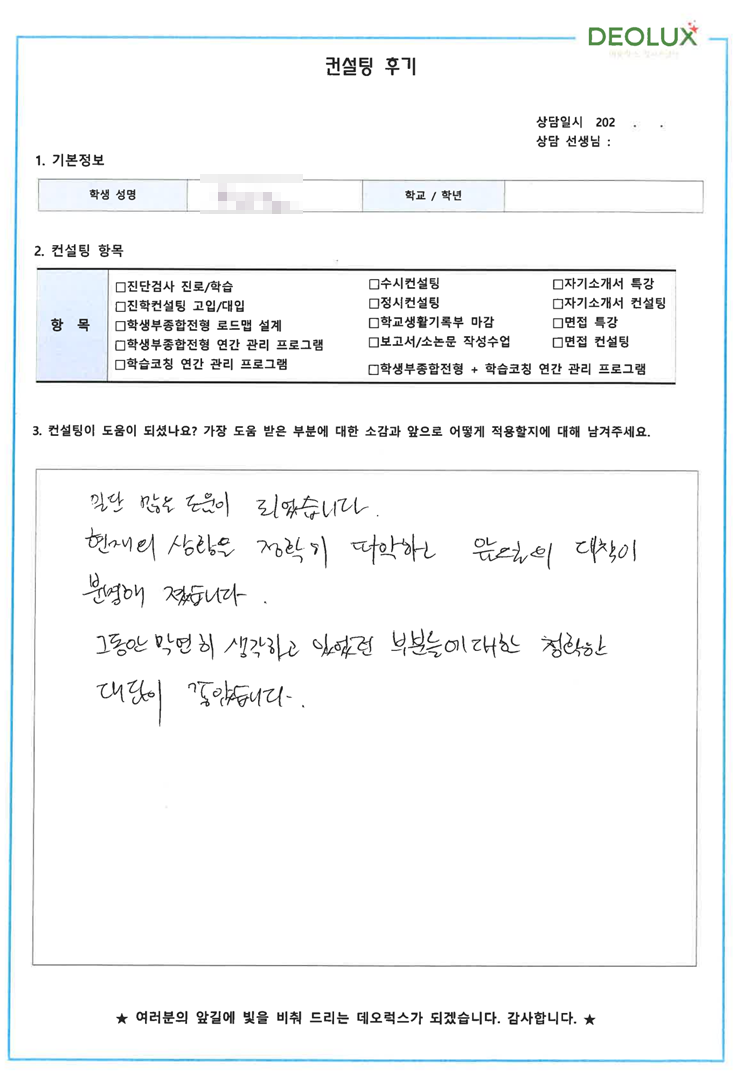 DEOLUX
컨설팅 후기
상담일시 202 . .
상담 선생님 :
1. 기본정보
학생 성명
학교 / 학년
2. 컨설팅 항목
항 목
□진단검사 진로/학습
□진학컨설팅 고입/대입
□학생부종합전형 로드맵 설계
□학생부종합전형 연간 관리 프로그램
□학습코칭 연간 관리 프로그램
□수시컨설팅
□정시컨설팅
□학교생활기록부 마감
□보고서/소논문 작성수업
□학생부종합전형 + 학습코칭 연간 관리 프로그램
□자기소개서 특강
□자기소개서 컨설팅
□면접 특강
□면접 컨설팅
3. 컨설팅이 도움이 되셨나요? 가장 도움 받은 부분에 대한 소감과 앞으로 어떻게 적용할지에 대해 남겨주세요.
일단 많은 도움이 되었습니다.
현재의 상황을 정확히 파악하고 앞으로의 대책이
분명해 졌습니다.
그동안 막연히 생각하고 있었던 부분들에 대한 정확한
대답이 좋았습니다.
★ 여러분의 앞길에 빛을 비춰 드리는 데오럭스가 되겠습니다. 감사합니다. ★